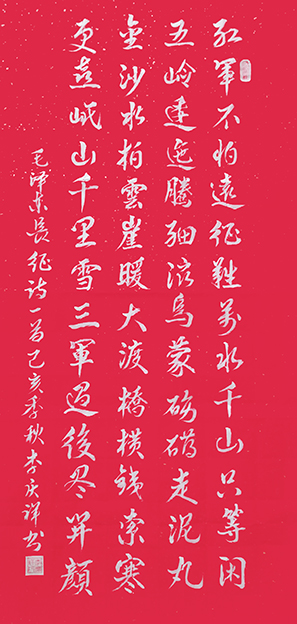 红軍不怕遠征難萬水千山只等闲
五岭逶迤騰细浪烏蒙磅礴走泥丸
金沙水拍雲崖暖大渡橋横铁索寒
更喜岷山千里雪三軍過後尽開顔
毛泽东長征詩一首己亥季秋李庆祥书